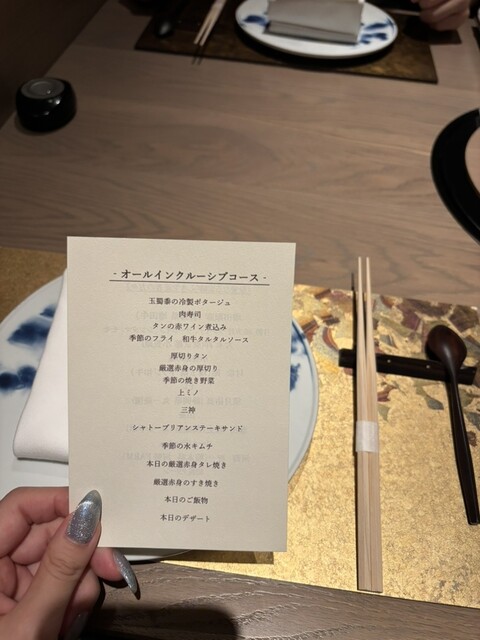 - オールインクルーシブコース -
玉蜀黍の冷製ポタージュ
肉寿司
タンの赤ワイン煮込み
季節のフライ 和牛タルタルソース
厚切りタン
厳選赤身の厚切り
季節の焼き野菜
上ミノ
三神
シャトーブリアンステーキサンド
季節の水キムチ
本日の厳選赤身タレ焼き
厳選赤身のすき焼き
本日のご飯物
本日のデザート